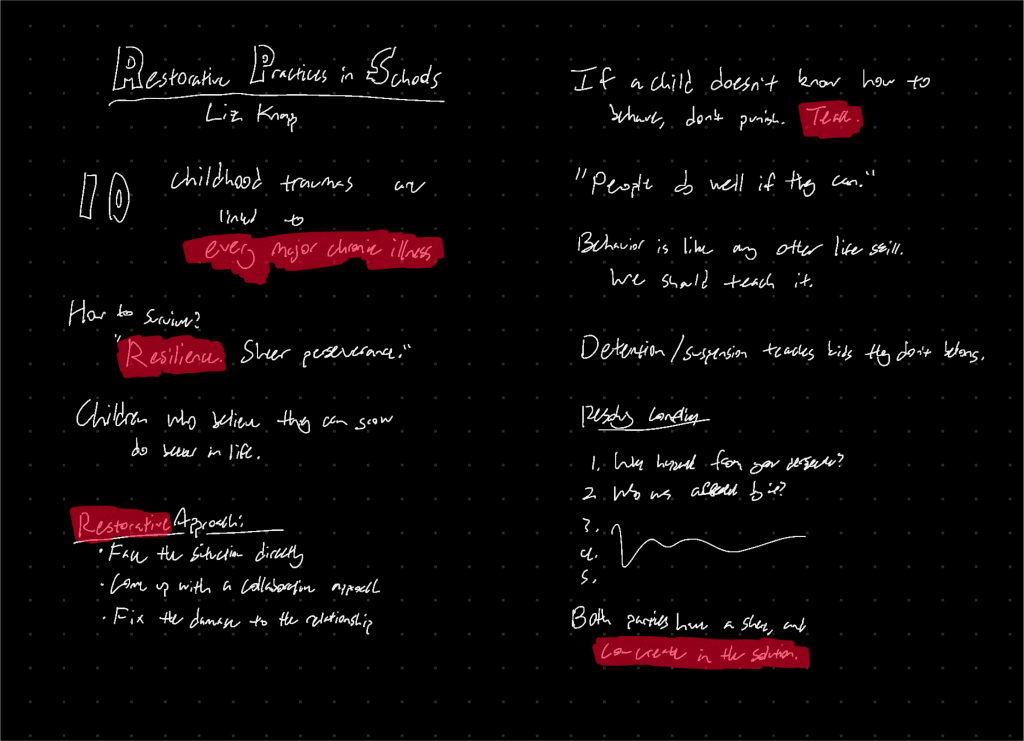 Restorative Practices in Schools
Liz Knapp
10 childhood traumas are
linked to
every major chronic illness
How to survive?
"Resilience. Sheer perseverance."
Children who believe they can grow
do better in life.
Restorative Approach:
• Face the situation directly
• Come up with a collaborative approach
• Fix the damage to the relationship
If a child doesn't know how to
behave, don't punish. Teach.
"People do well if they can."
Behavior is like any other life skill.
We should teach it.
Detention/suspension teaches kids they don't belong.
1. What happened from your perspective?
2. Who was affected by it?
3.
4.
5.
Both parties have a share, and
co-create in the solution.